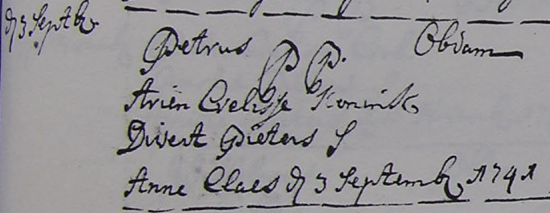 d 3 Septb
Petrus PP. Obdam
Arien Crelisse Konink
Divert Pieters S
Anne Claes d 3 Septemb 1741